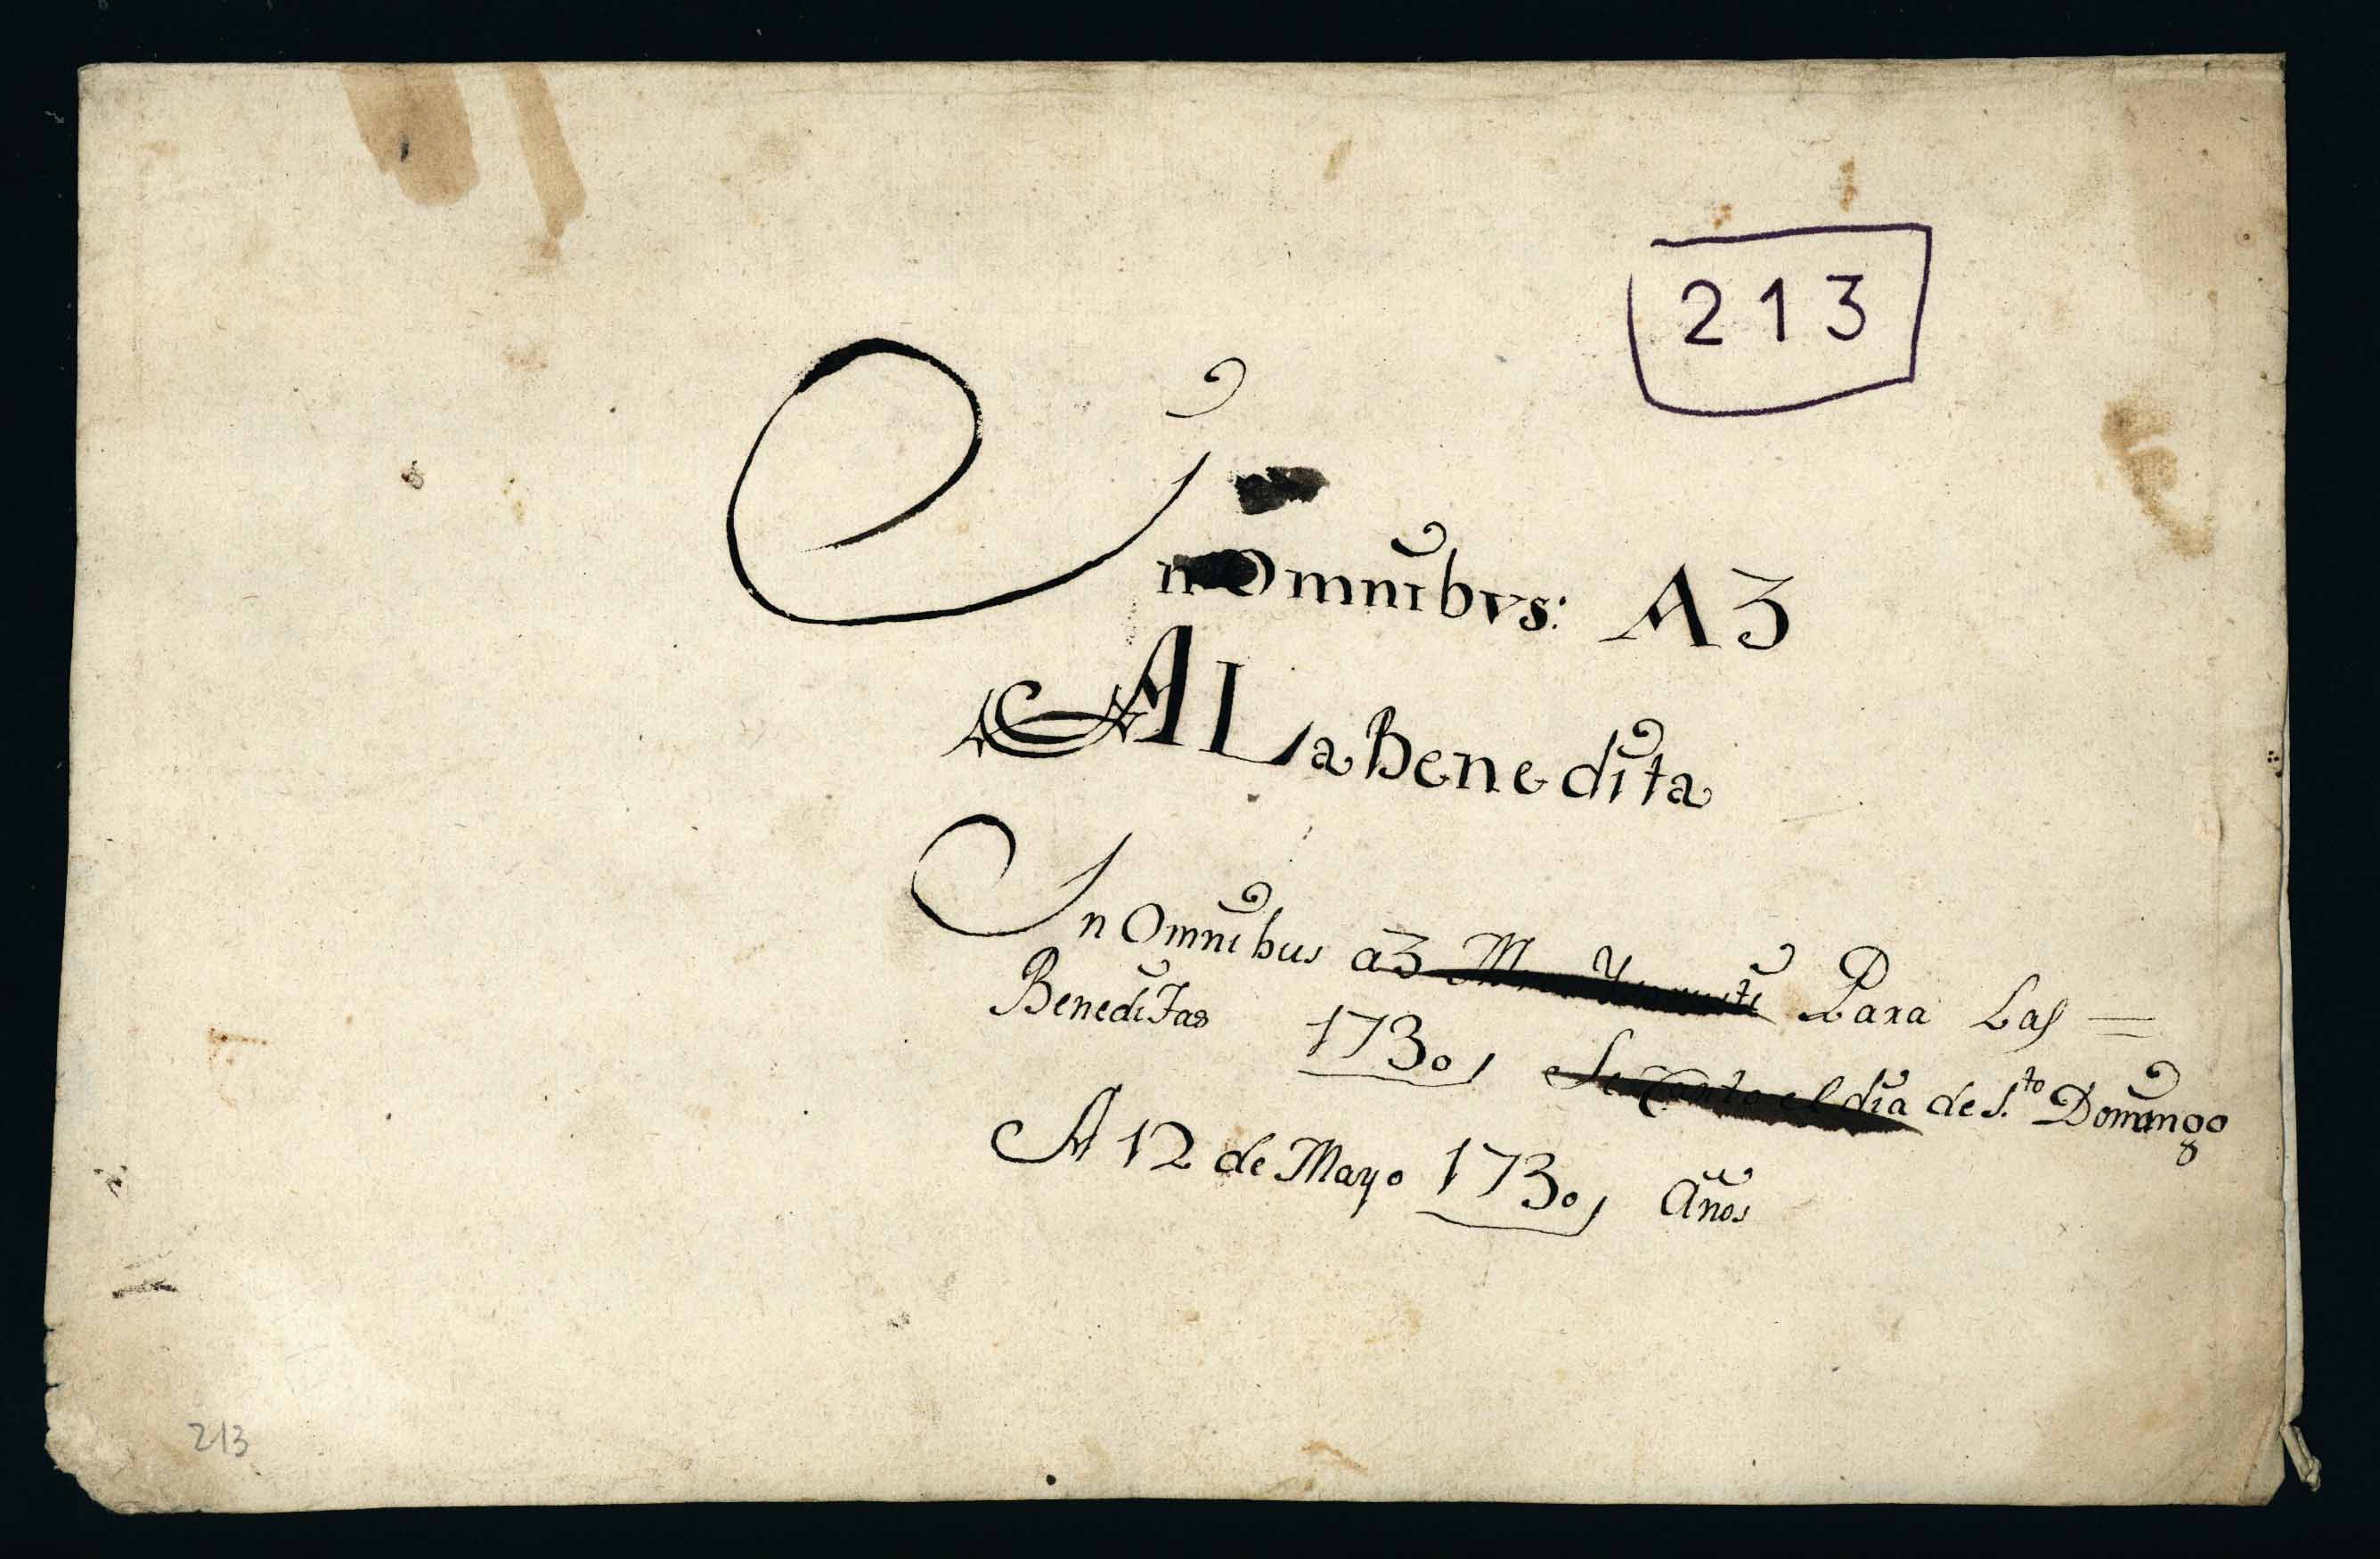 213
In Omnibus: A3
A La Benedita
In Omnibus a3 Para Las =
Beneditas 1730, Se Canto el dia de S.to Domingo
A 12 de Mayo 1730, Años
213